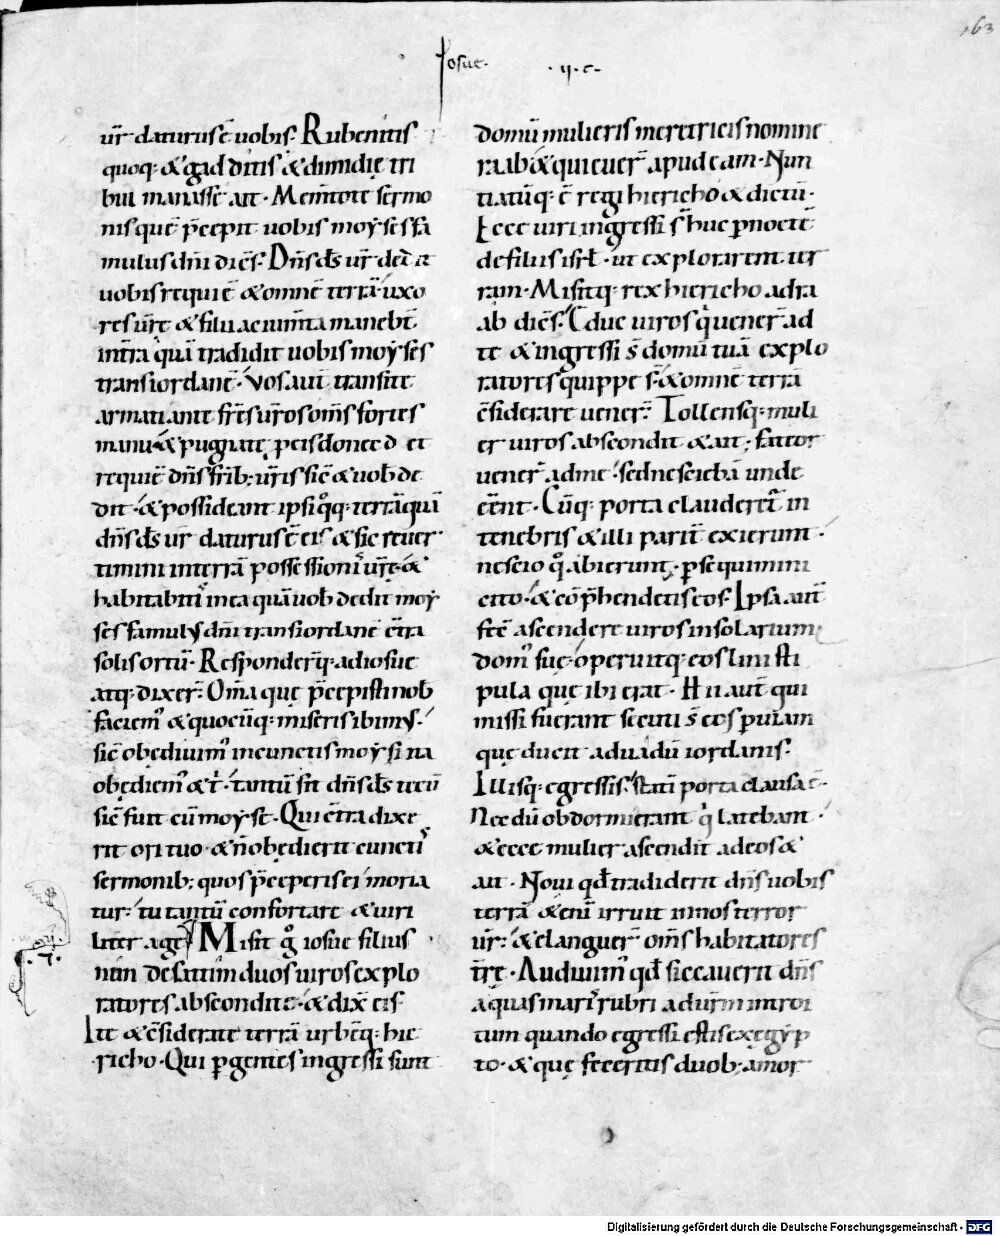 163
Iosue. .ii.c.
ur̄ daturus ē uobis. Rubenitis
quoq: & gadditis & dimidię tri
bui manasse ait. Mem̄tote sermo
nis quē p̄cepit uobis moẏses fa
mulus dn̄i dicēs. Dn̄s d̄s ur̄ dedit
uobis requiē & omnē terrā. uxo
res ur̄ę & filii ac ium̄ta manebt̄
int̄ra quā tradidit uobis moẏses
transiordanē. Vos aut̄ transite
armati ante fr̄es ur̄os om̄s fortes
manu. & pugnate p eis donec det
requiē dn̄s fr̄ib; ur̄is sic̄ & uob̄ de
dit. & possideant ipsi q̊q: terrā quā
dn̄s d̄s ur̄ daturus ē eis. & sic reuer
timini interrā possessionis ur̄ę. &
habitabitis in ea quā uob̄ dedit moẏ
ses famulus dn̄i transiordanē ct̄ra
solis ortū. Responderq̄: adiosue
atq: dixer̄. Om̄a quę p̄cepisti nob̄
faciem᷒ & quocūq: miseris ibimus.
sic̄ obediuim᷒ in cunctis moẏsi ita
obędiem᷒ & t̄. tantū sit dn̄s d̄s tecū
sic̄ fuit cū moẏse. Qui ct̄radixe
rit ori tuo. & n̄ obędierit cunctis
sermonib; quos p̄ceperis ei moria
tur. tu tantū confortare & uiri
liter age. Misit g̊ iosue filius
nun desettim duos uiros explo
ratores abscondite. & dix̄ eis.
Ite & c̄siderate terrā urbēq: hie
richo. Qui pgentes ingressi sunt
domū mulieris meretricis nomine
raab & quieuer̄ apud eam. Nun
tiatūq: ē regi hiericho & dictū.
Ecce uiri ingressi s̄ huc p noctē
de filiis isrl̄. ut explorarent ter
ram. Misitq: rex hiericho adra
ab dicēs. Educ uiros qui uener̄ ad
te & ingressi s̄ domū tuā explo
ratores quippe s̄. & omnē terrā
c̄siderare uener̄. Tollensq: muli
er uiros abscondit & ait. fateor
uener̄ adme. sed nesciebā unde
eēnt. Cūq: porta clauderet̄ in
tenebris & illi parit̄ exierunt.
nescio q̊ abierunt. psequimini
cito. & cōp̄hendetis eos. Ipsa aut̄
fecit ascendere uiros insolarium
dom᷒ suę. operuitq: eos lini sti
pula quę ibi erat. Hii aut̄ qui
missi fuerant secuti s̄ eos p uiam
quę ducit aduadū iordanis.
Illisq: egressis. statī porta clausa ē.
Necdū obdormierant qui latebant.
& ecce mulier ascendit adeos &
ait. Noui qd̄ tradiderit dn̄s uobis
terrā & eni᷒ irruit innos terror
ur̄. & elanguer̄ om̄s habitatores
t̄rę. Audiuim᷒ qd̄ siccauerit dn̄s
aquas maris rubri adur̄m introi
tum quando egressi estis ex ęgẏp
to. & quę feceritis duob; amor
Digitalisierung gefördert durch die Deutsche Forschungsgemeinschaft - DFG